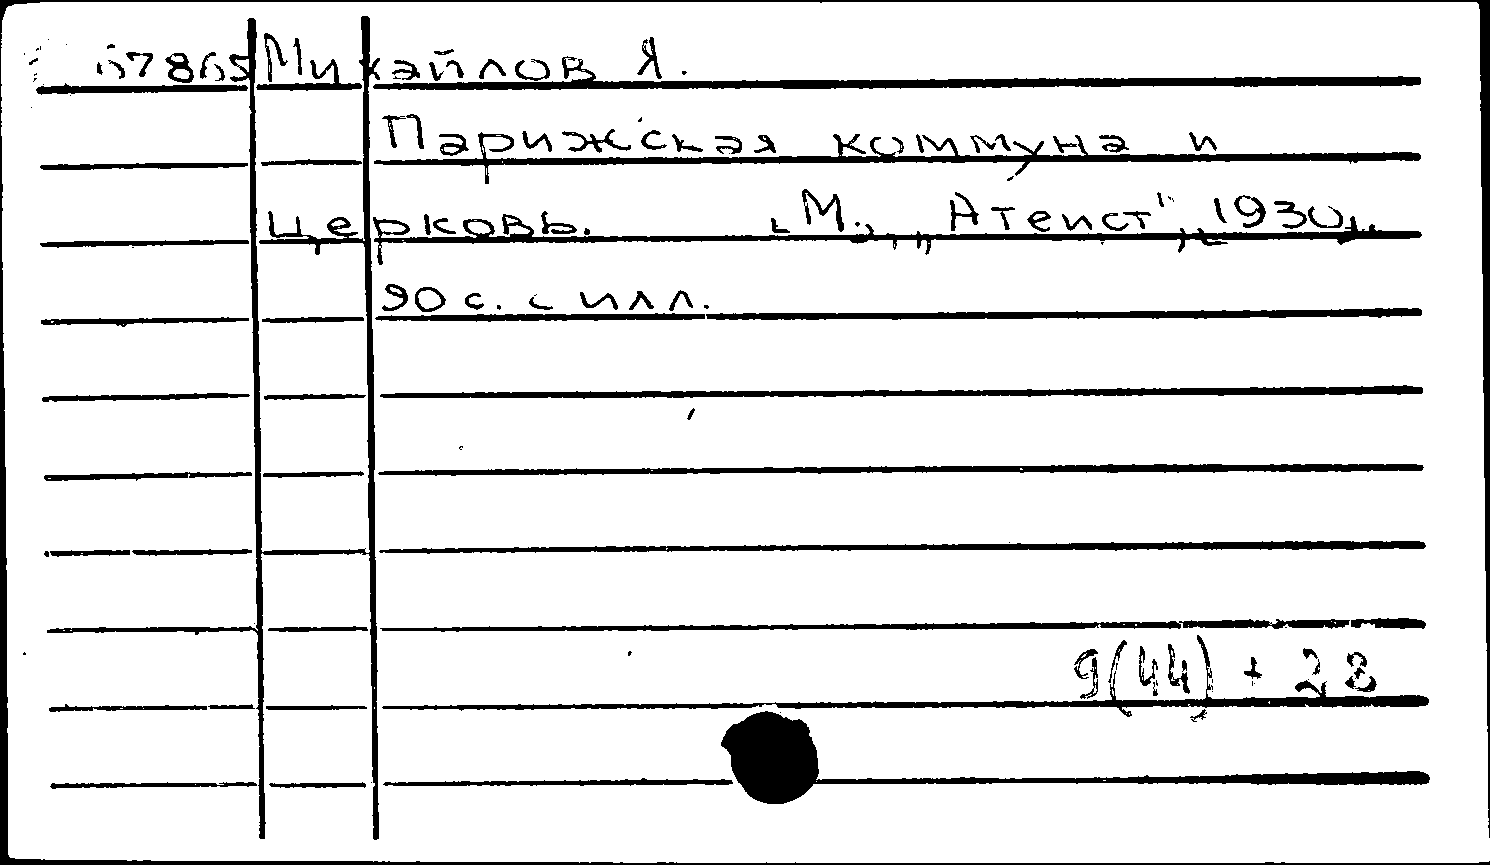 67865 Михайлов Я.
Парижская коммуна и
церковь. [М., „Атеист", [1930].
90 с. с илл.
9(44) + 28